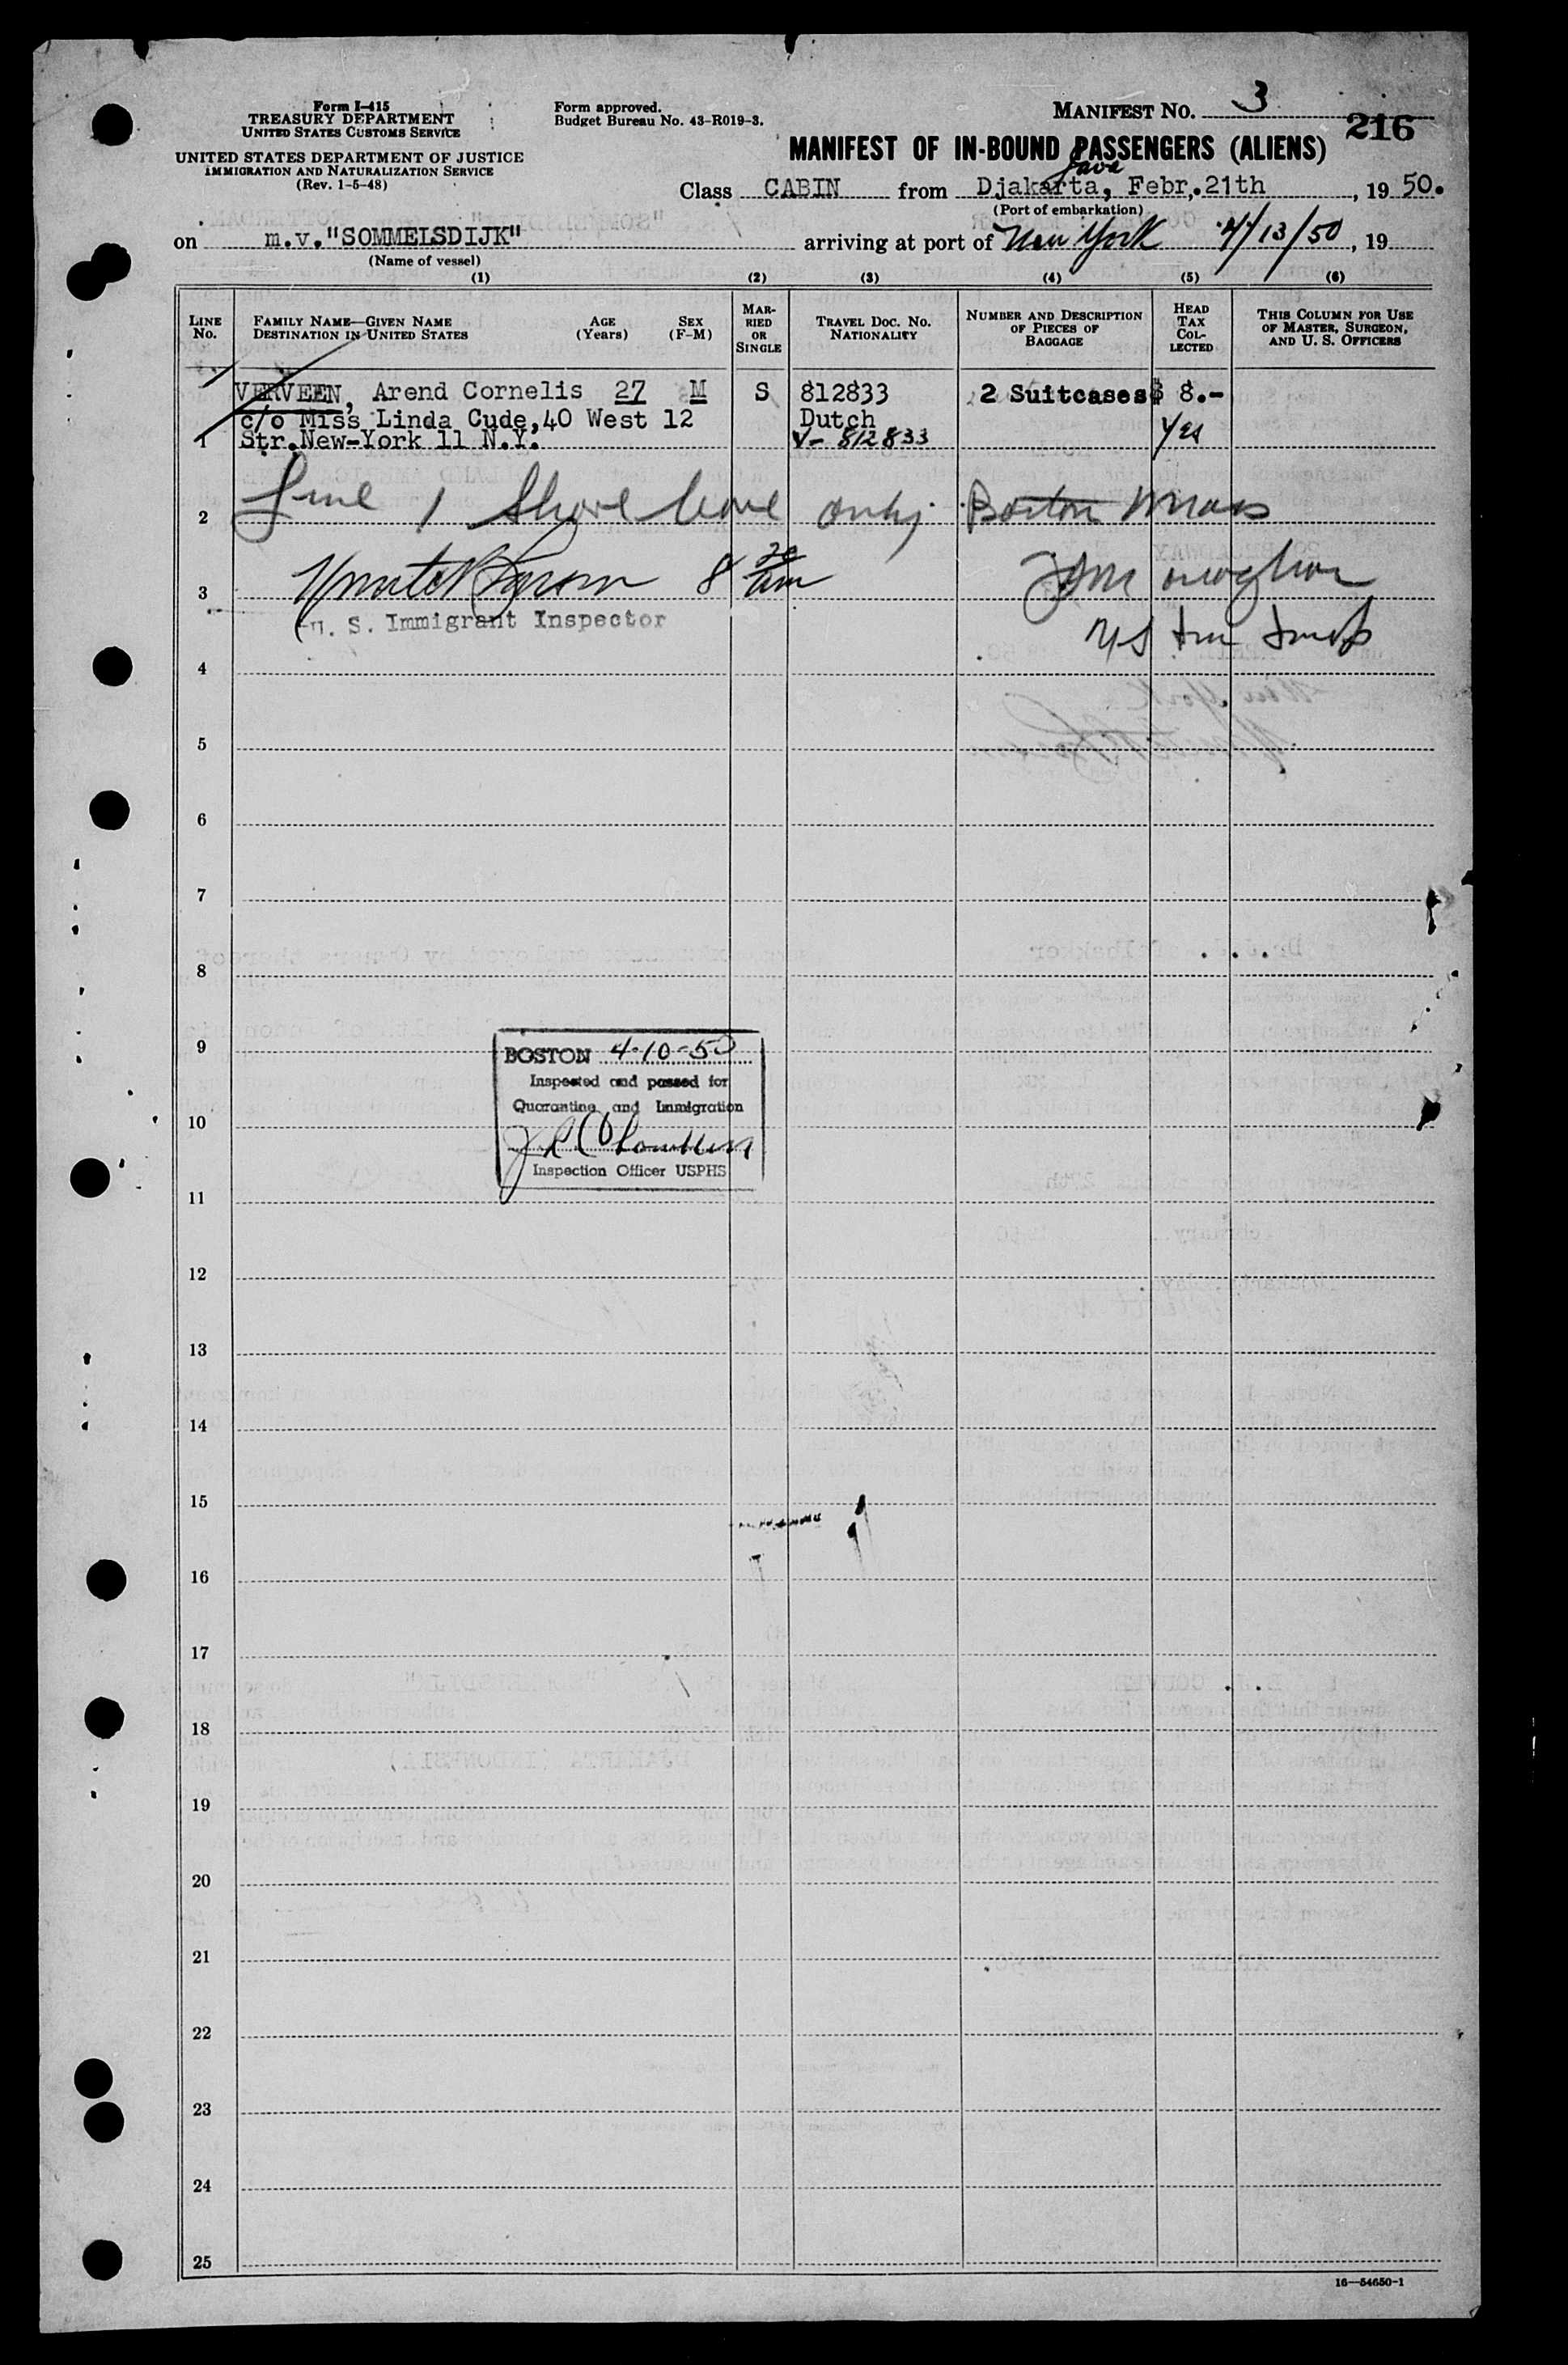 Form I-415
TREASURY DEPARTMENT
UNITED STATES CUSTOMS SERVICE
UNITED STATES DEPARTMENT OF JUSTICE
IMMIGRATION AND NATURALIZATION SERVICE
(Rev. 1-5-48)
Form approved.
Budget Bureau No. 43-R019-3.
MANIFEST NO. 3
216
MANIFEST OF IN-BOUND PASSENGERS (ALIENS)
Java
Class CABIN from Djakarta, Febr,.21th, 1950.
(Port of embarkation)
on m.v."SOMMELSDIJK" arriving at port of New York 4/13/50, 19
(Name of vessel)
(1) (2) (3) (4) (5) (6)
LINE No.
FAMILY NAME—GIVEN NAME
DESTINATION IN UNITED STATES
AGE (Years)
SEX (F-M)
MARRIED OR SINGLE
TRAVEL DOC. NO.
NATIONALITY
NUMBER AND DESCRIPTION OF PIECES OF BAGGAGE
HEAD TAX COLLECTED
THIS COLUMN FOR USE OF MASTER, SURGEON, AND U. S. OFFICERS
VERVEEN, Arend Cornelis 27 M S 812833 2 Suitcases $ 8.-
c/o Miss Linda Cude,40 West 12 Dutch
1 Str.New-York 11 N.Y. V- 812833 Yes
2 Line 1 Shore leave only Boston Mass
3 8 30 am
U. S. Immigrant Inspector
US Imm Insp
4
5
6
7
8
9
BOSTON 4-10-50
Inspected and passed for
Quarantine and Immigration
10
Inspection Officer USPHS
11
12
13
14
15
16
17
18
19
20
21
22
23
24
25
16—54650-1